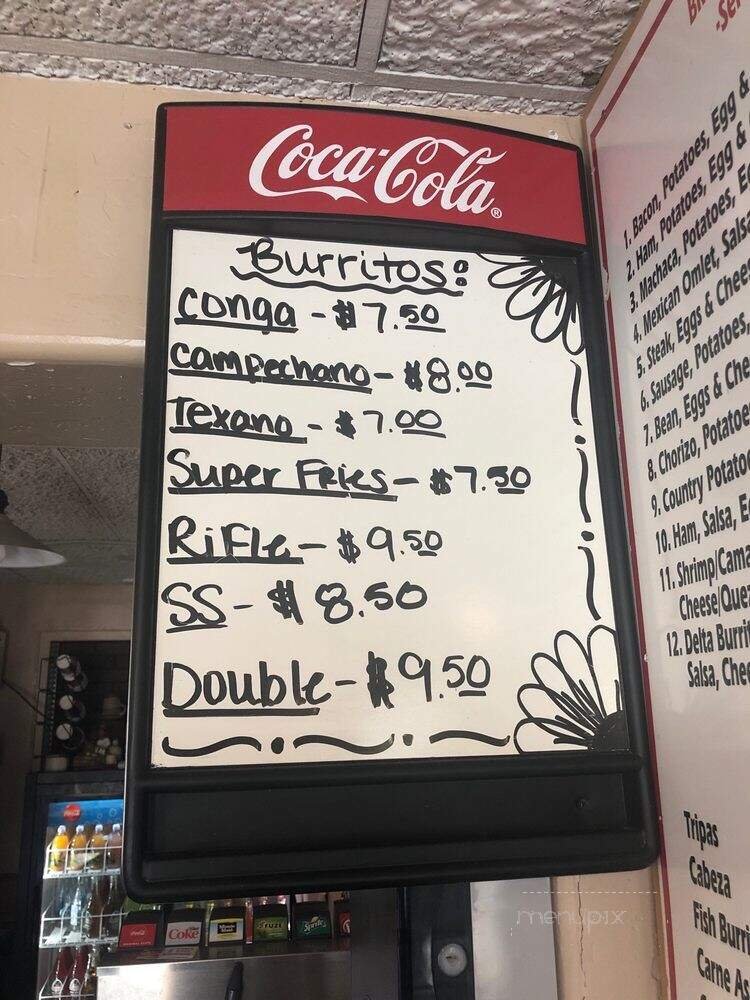 Coca-Cola®
Burritos:
Conga - $7.50
Campechano - $8.00
Texano - $7.00
Super Fries - $7.50
Rifle - $9.50
SS - $8.50
Double - $9.50
1. Bacon, Potatoes, Egg &
2. Ham, Potatoes, Egg &
3. Machaca, Potatoes,
4. Mexican Omlet, Salsa
5. Steak, Eggs & Chees
6. Sausage, Potatoes
7. Bean, Eggs & Che
8. Chorizo, Potatoe
9. Country Potatoe
10. Ham, Salsa,
11. Shrimp/Cama
Cheese/Que
12. Delta Burri
Salsa, Chee
Tripas
Cabeza
Fish Burri
Carne As
Coke
FUZE
Sprite
menupix